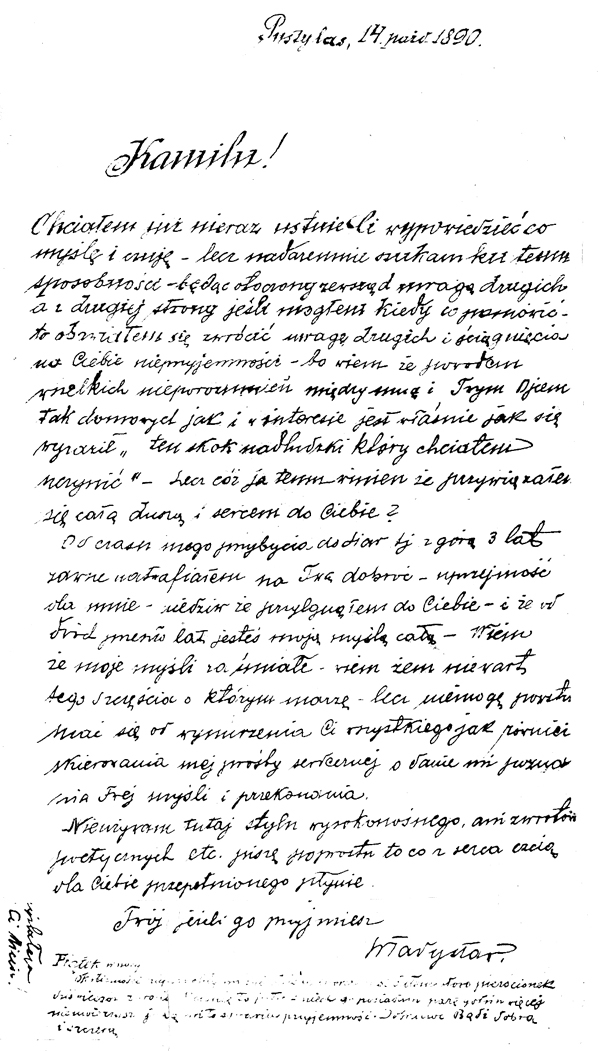 Pusty las, 14 paźd. 1890.
Kamilu!
Chciałem już nieraz ustnie Ci wypowiedzieć co
myślę i czuję – lecz nadaremnie szukam ku temu
sposobności – będąc otoczony zewsząd uwagą drugich
a z drugiej strony jeśli mogłem kiedy co pomówić –
to obawiałem się zwrócić uwagę drugich i ściągnięcia
na Ciebie nieprzyjemności – bo wiem że powodem
wielkich nieporozumień między mną i Twym Ojcem
tak domowych jak i w interesie jest właśnie jak się
wyraził „ten skok nadludzki który chciałem
uczynić" – Lecz cóż ja temu winien że przywiązałem
się całą duszą i sercem do Ciebie?
Od czasu mego przybycia do Siar tj z górą 3 lat
zawsze natrafiałem na Twą dobroć – uprzejmość
dla mnie – nie dziw że przylgnąłem do Ciebie – i że od
dwóch lat jesteś moją myślą całą – Wiem
że moje myśli za śmiałe – wiem żem nie wart
tego szczęścia o którym marzę – lecz niemogę powstrzy
mać się od wynurzenia Ci wszystkiego jak również
skierowania mej prośby serdecznej o danie mi pozna
nia Twej myśli i przekonania.
Nieużywam tutaj stylu wysokonośnego, ani zwrotów
poetycznych etc. piszę poprostu to co z serca czcią
dla Ciebie przepełnionego płynie.
Twój jeśli go przyjmiesz
Władysław.
Piątek
pierścionek
parę godzin więcej
przyjemność Bądź dobrą
i szczerą